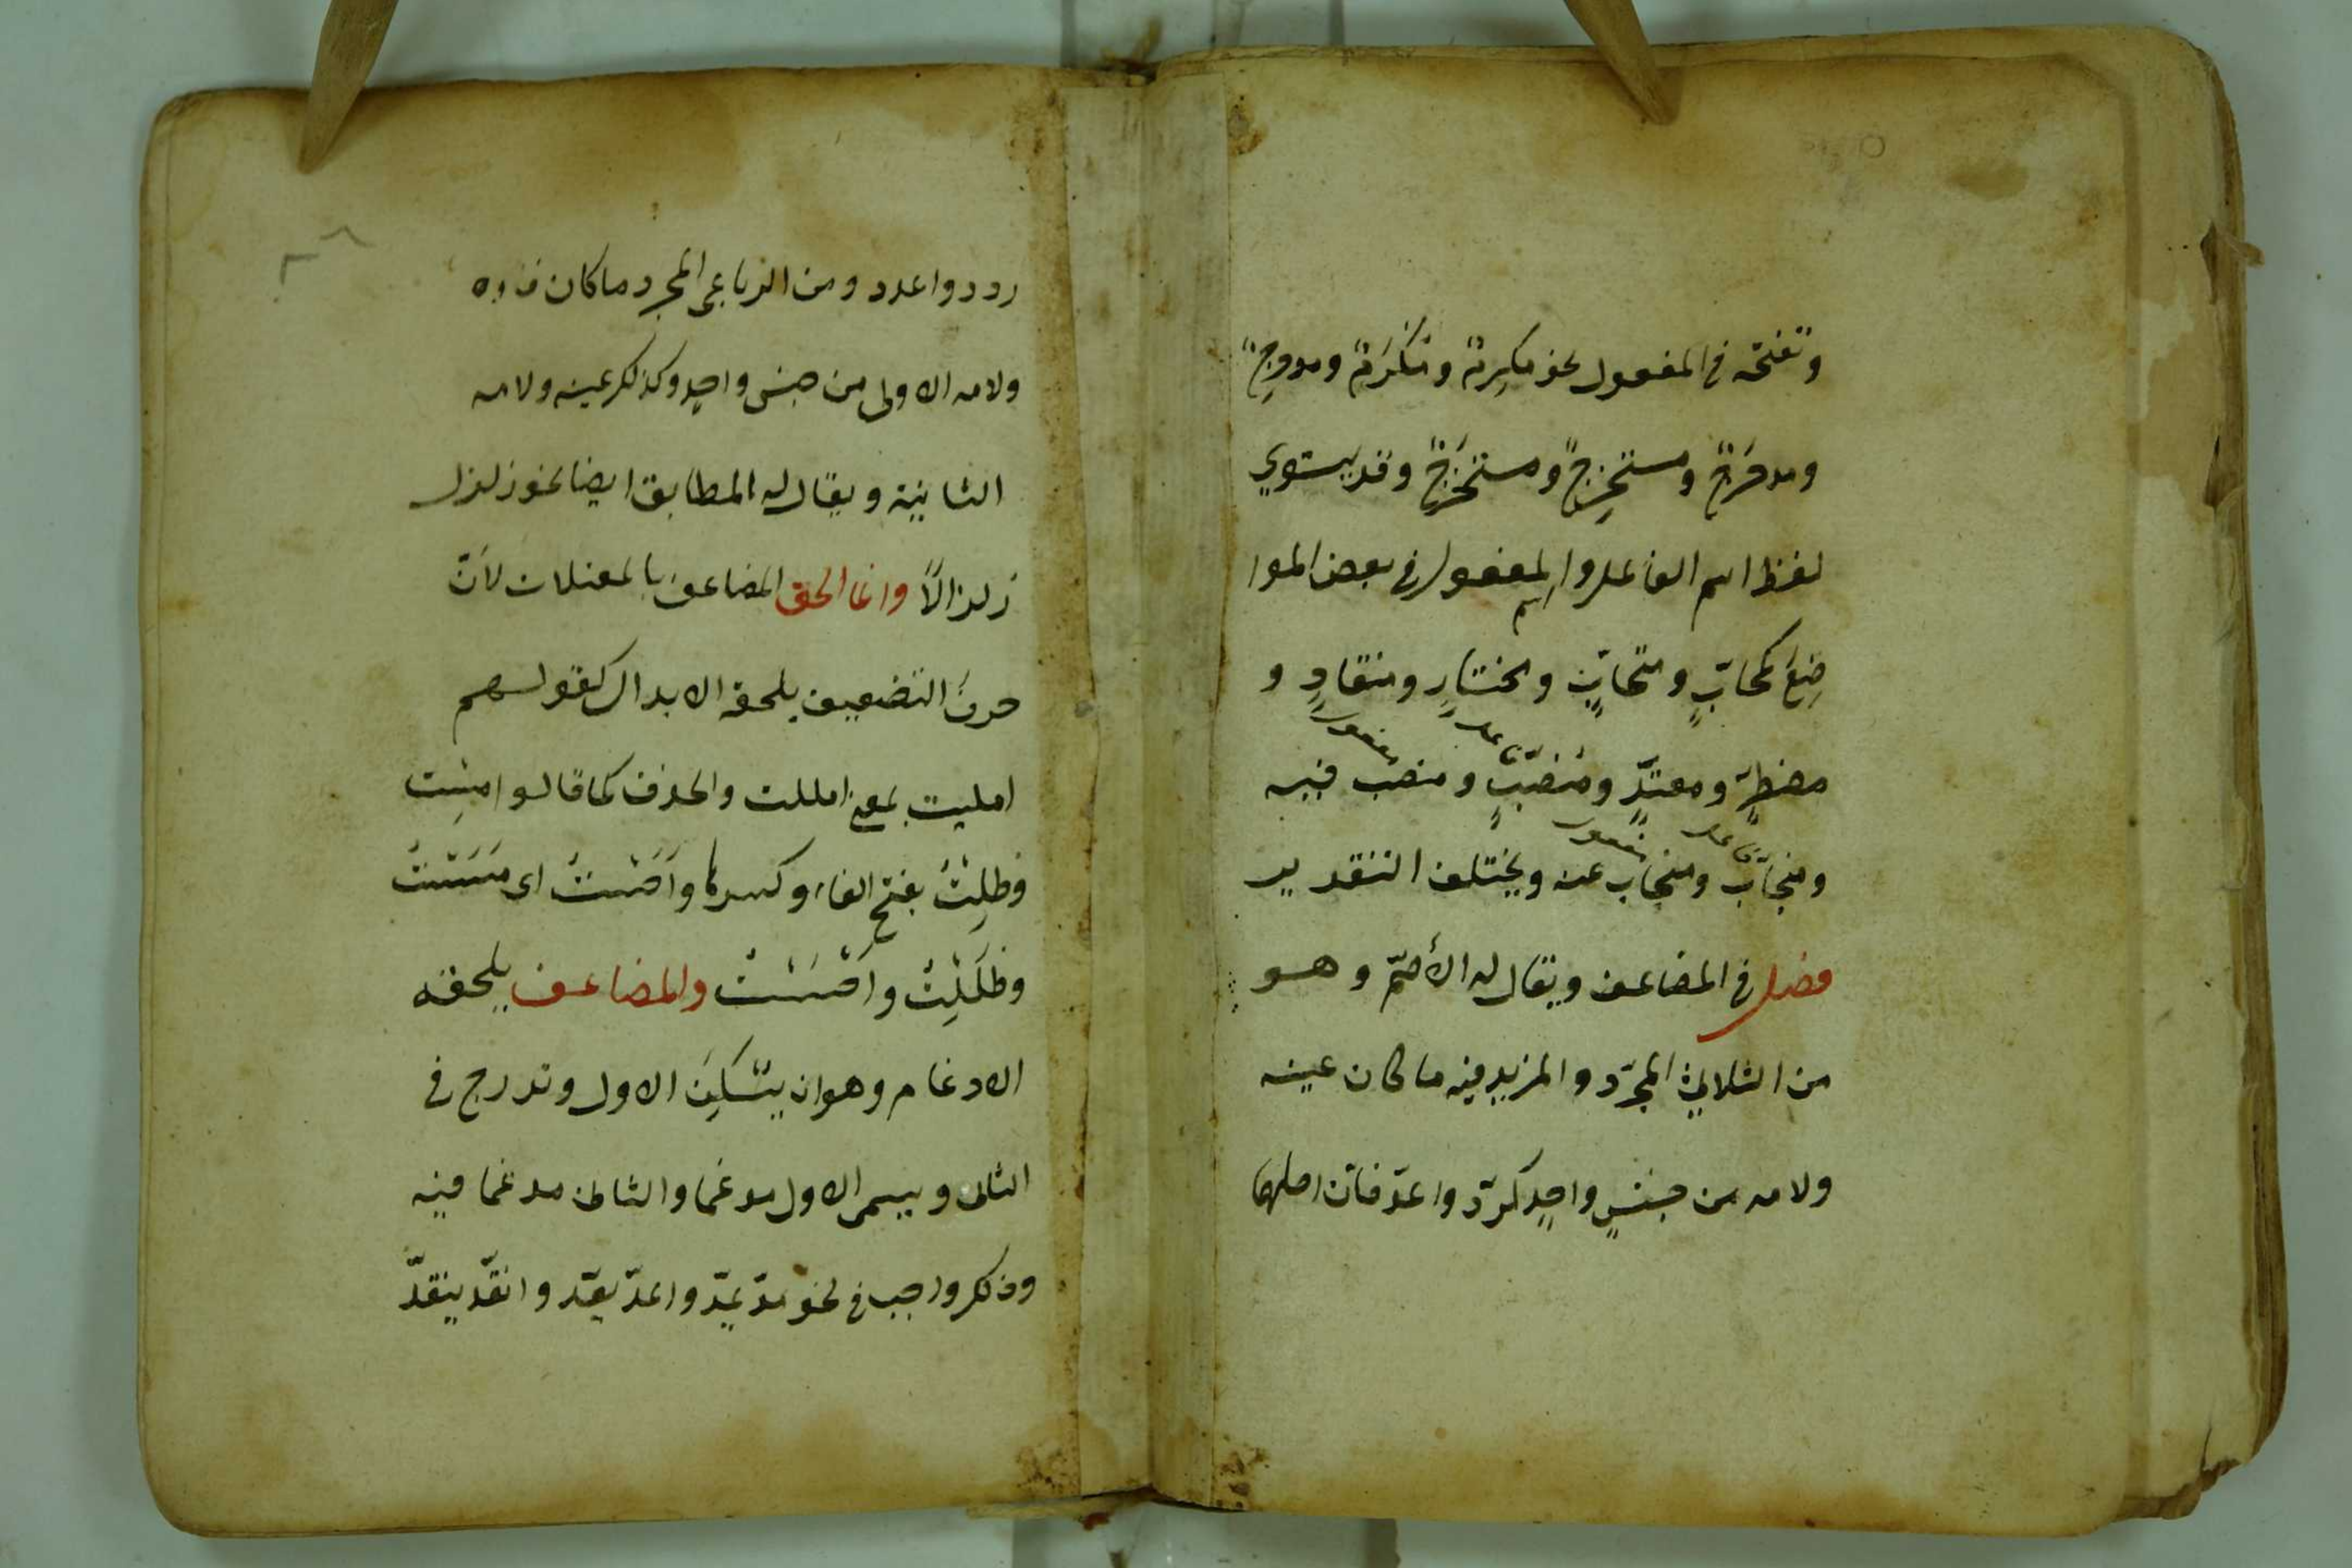 وتفتحه في المفعول نحو مكرِم ومكرَم ومدحرِج
ومدحرَج ومستخرِجٌ ومستخرَجٌ وقد يستوي
لفظ اسم الفاعل واسم المفعول في بعض الموا
ضِع كمحابٍّ ومتحابٍّ ومختارٍ ومنقادٍ و
مضطرٍّ ومعتدٍّ ومنصبٍّ ومنصب فيه
فاعل مفعول
ومنجابٌ ومنجاب عنه ويختلف التقدير
فاعل مفعول
فصل في المضاعف ويقال له الأصمّ وهو
من الثلاثي المجرّد والمزيد فيه ما كان عينه
ولامه من جنسٍ واحدٍ كردّ واعدّ فان اصلهما
ردد واعدد ومن الرباعي المجرد ما كان فاوه
ولامه الاولى من جنس واحدٍ وكذلك عينه ولامه
الثانية ويقال له المطابق ايضا نحو زلزل
زلزالاً وانما الحق المضاعف بالمعتلات لانّ
حرفَ التضعيف يلحقه الابدال كقولهم
امليت بمعنى امللت والحذف كما قالوا مِسْت
وظلِتُ بفتح الفاء وكسرها وأحَسْتُ اي مَسَسْتُ
وظلَلِتُ وأحْسَسْتُ والمضاعف يلحقه
الادغام وهو ان يسَكنَ الاول وتدرج في
الثاني ويسمى الاول مدغما والثاني مدغما فيه
وذلك واجب في نحو مدّ يمدّ واعدّ يعدّ وانقدّ ينقدّ